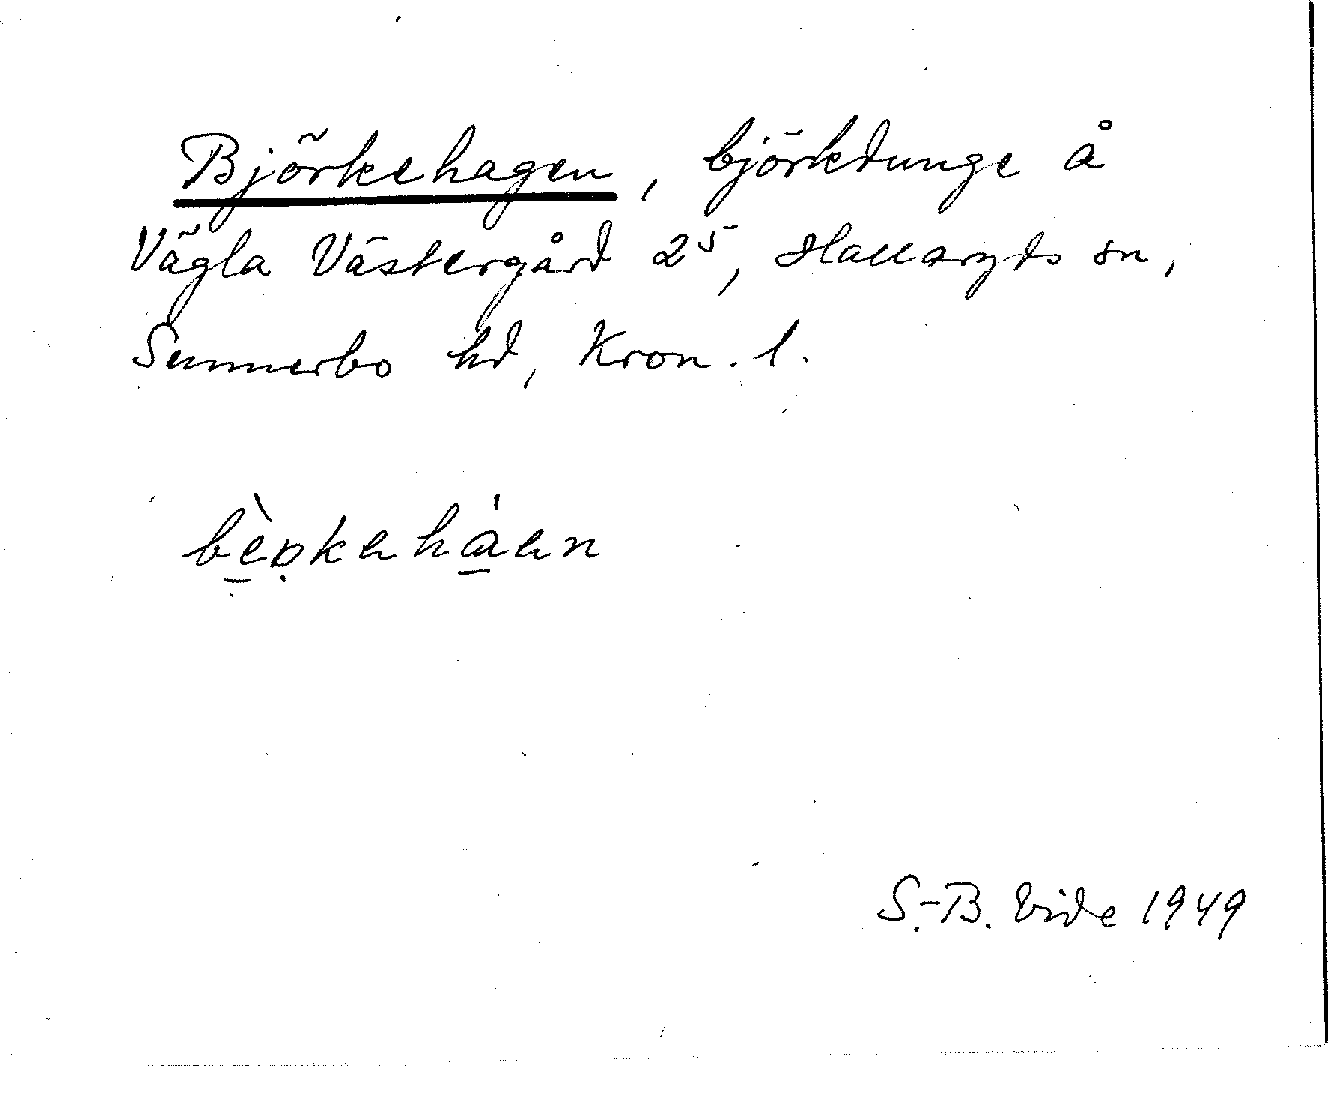 Björkehagen, björkdunge å
Vägla Västergård 2⁵, Hallaryds sn,
Sunnerbo hd, Kron. l.
S.-B. Vide 1949